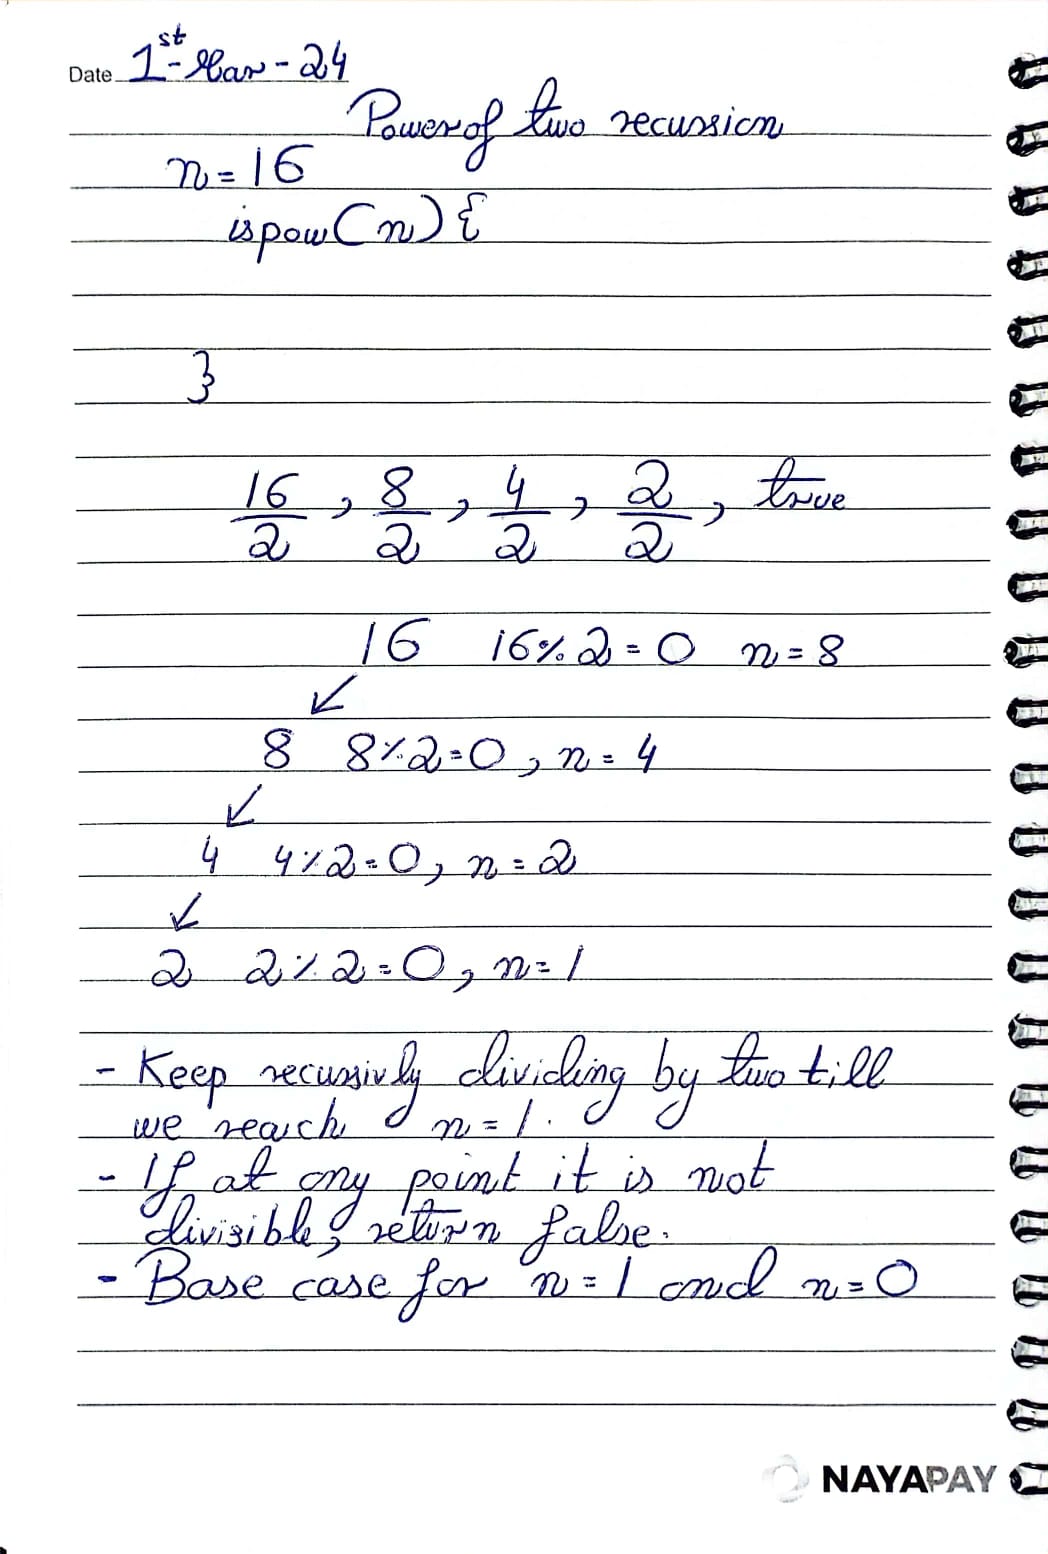 Date 1st-Mar-24
Power of two recussion
n=16
ispow(n){
}
16/2, 8/2, 4/2, 2/2, true
16 16%2=0 n=8
8 8%2=0, n=4
4 4%2=0, n=2
2 2%2=0, n=1
- Keep recussivly dividing by two till
we reach n=1.
- If at any point it is not
divisible, return false.
- Base case for n=1 and n=0
NAYAPAY